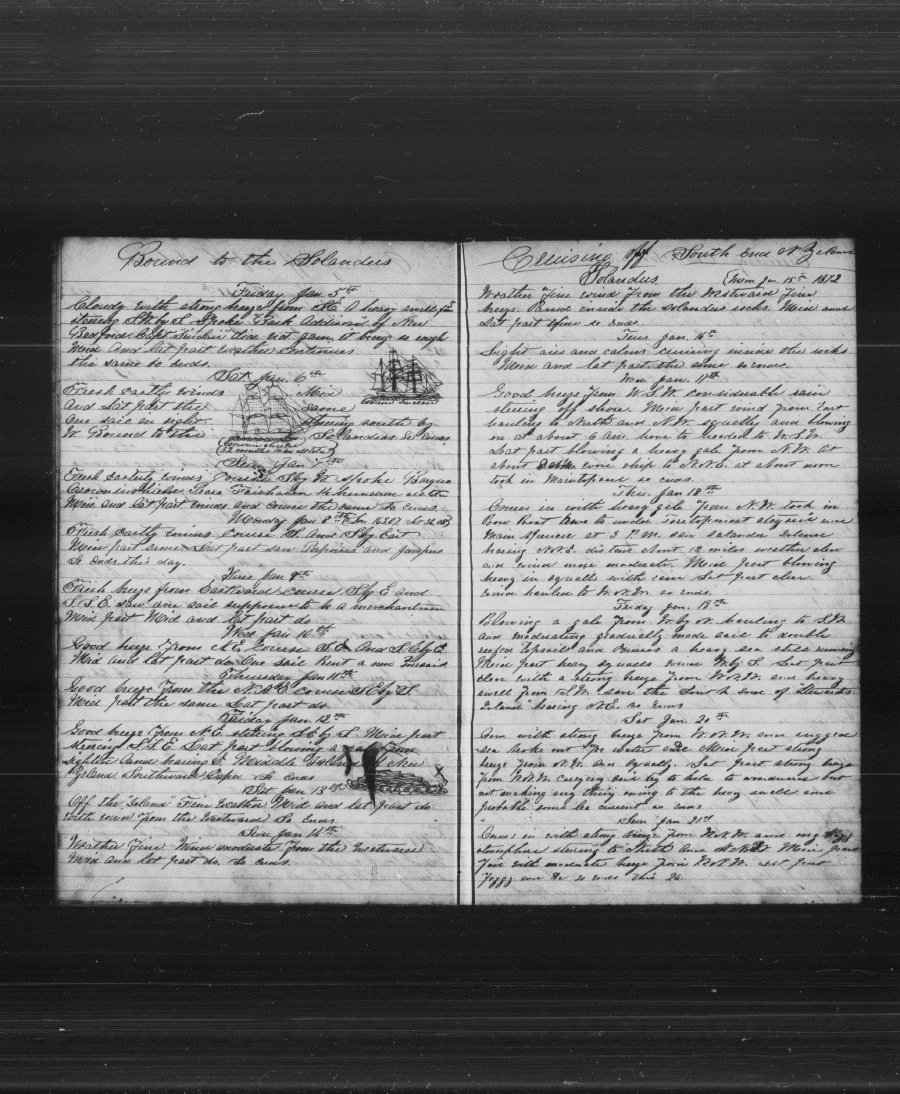 Bound to the Solanders
Friday Jan. 5th
Cloudy with strong breeze from S.E. A heavy swell
steering S.W. by S. Spoke Bark Addison of New
Bedford Capt Sinclair did not gam, it being so rugh
Mid And Lat part weather continues
the same so Ends.
Sat Jan. 6th
Fresh Eastly winds Mid
And Lat part the same
One sail in sight Steering south by
W. Bound to the Solanders So Ends
Sun Jan 7th
Fresh Easterly winds Course S by W. Spoke Barque
Fairhaven
Mid and Lat part winds and course the same So Ends
Monday Jan 8th
Fresh Eastly winds Course S. And S by East
Mid part same Lat part saw Porpoises and Jumpers
So Ends this day.
Tues Jan 9th
Fresh breeze from Eastward course S by E and
S.S.E. saw one sail suppose to be a merchantman
Mid part Mid and Lat part do
Wed Jan 10th
Good breeze from N.E. course S.E. And S.E by E
Mid and Lat part do. One sail Bent a new
Thursday Jan 11th
Good breeze from the N. course S.E by S.
Mid part the same Lat part do
Friday Jan 12th
Good breeze from N.E. steering S.E by S. Mid part
steering S.S.E. Lat part blowing a gale
sighted Land bearing E. Middle
Zeland Southward So Ends
Sat Jan 13th
Off the "Soland" Fine weather Mid and Lat part do
with wind from the Eastward So Ends
Sun Jan 14th
Weather Fine Wind moderate from the Eastward
Mid and Lat part do. So Ends.
Cruising off South End N Zeland
Solanders (from Jan 15th 1872
Weather Fine wind from the Westward Fine
breeze. Cruised inside the Solanders rocks. Mid and
Lat part fine so Ends.
Tues Jan. 16th
Light airs and calms cruising inside the rocks
Mid and Lat part the same so Ends.
Wed Jan. 17th
Good breeze from W.S.W. considerable rain
steering off shore. Mid part wind from East
hauling to North and N.W. squally and blowing
on S about 6 A.M. hove to headed to W.S.W.
Lat part blowing a heavy gale from N.W. At
about wore ship to N.N.E. at about noon
took in Maintopsail so Ends.
Thu. Jan 18th
Comes in with heavy gale from N.W. took in
Bow Boat
Main spencer at 3 P.M. saw Solander Island
bearing N.E. distant about 12 miles weather clear
and wind more moderate. Mid part blowing
heavy in squalls with rain Lat part clear
wind hauled to W.N.W. so Ends.
Friday Jan. 19th
Blowing a gale from W. by N. hauling to S.W.
and moderating gradually made sail to double
reefed Topsails and courses a heavy sea still running
Mid part heavy squalls wind W. by S. Lat part
clear with a strong breeze from W.N.W. and heavy
swell from S.W. saw the South End of Stewards
Island bearing N.E. so Ends
Sat Jan. 20th
Com with strong breeze from W.N.W. and rugged
sea broke out for water etc Mid part strong
breeze from N.W. And squally. Lat part strong breeze
from N.N.W. Carrying sail try to hold to windward but
not making any thing owing to the heavy swell and
probable some lee current so Ends
Sun Jan 21st
Comes in with strong breeze from N.N.W. and foggy
atmosphere steering to North and Mid part
Fine with moderate breeze from N.N.W. Lat part
Foggy so Ends this 24